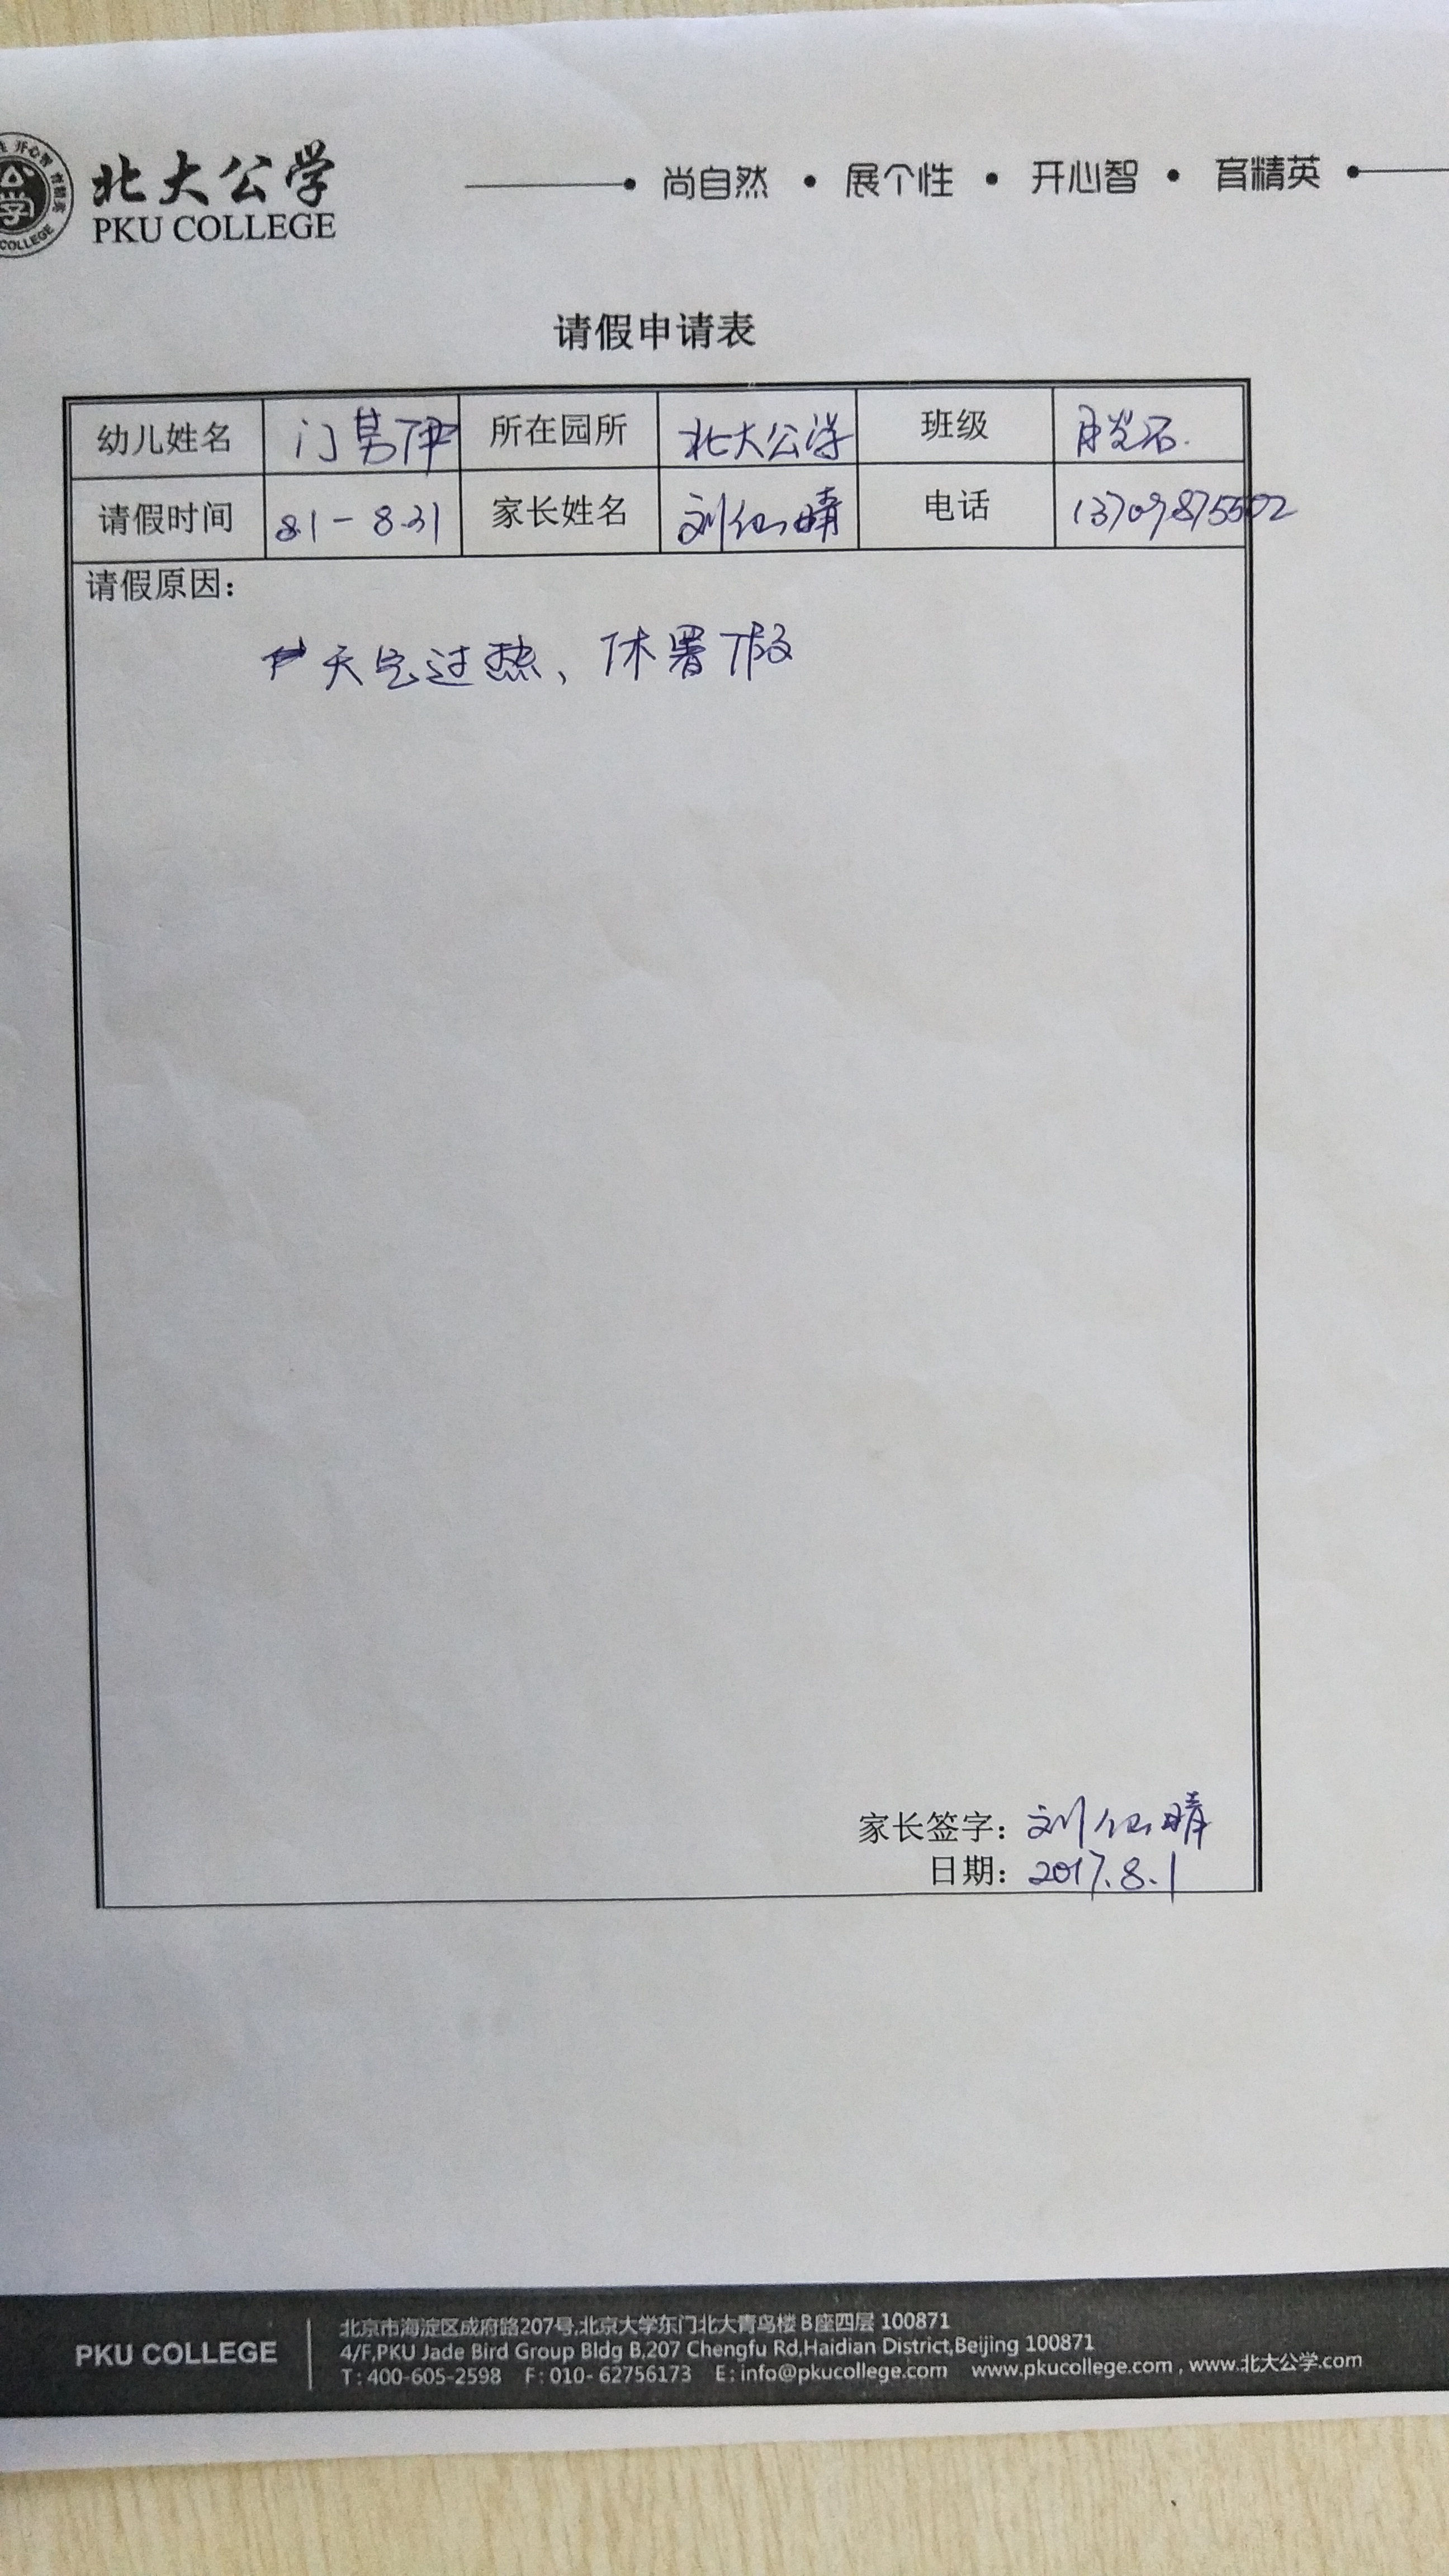 北大公学
PKU COLLEGE
尚自然 • 展个性 • 开心智 • 育精英
请假申请表
幼儿姓名 门男伊 所在园所 北大公学 班级 月光石.
请假时间 8.1-8.31 家长姓名 刘仙晴 电话 13709875502
请假原因:
天气过热、休署假
家长签字: 刘仙晴
日期: 2017.8.1
PKU COLLEGE
北京市海淀区成府路207号,北京大学东门北大青鸟楼B座四层 100871
4/F,PKU Jade Bird Group Bldg B,207 Chengfu Rd,Haidian District,Beijing 100871
T:400-605-2598 F:010-62756173 E:info@pkucollege.com www.pkucollege.com , www.北大公学.com